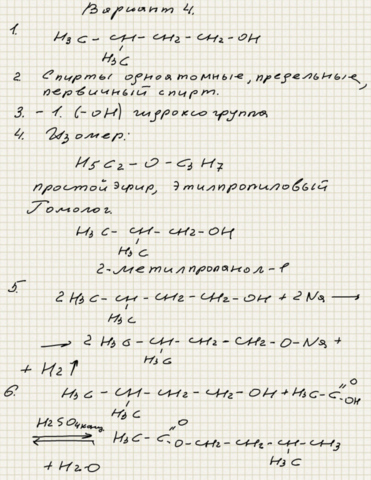 Вариант 4.
1.
H3C - CH - CH2 - CH2 - OH
H3C
2. Спирты одноатомные, предельные,
первичный спирт.
3. - 1. (-OH) гидроксогруппа
4. Изомер:
H5C2 - O - C3H7
простой эфир, этилпропиловый
Гомолог
H3C - CH - CH2 - OH
H3C
2-метилпропанол-1
5. 2H3C - CH - CH2 - CH2 - OH + 2Na →
H3C
→ 2H3C - CH - CH2 - CH2 - O - Na +
H3C
+ H2↑
6. H3C - CH - CH2 - CH2 - OH + H3C - C =O OH
H3C
H2SO4 конц. ⇌ H3C - C =O O - CH2 - CH2 - CH - CH3
H3C
+ H2O